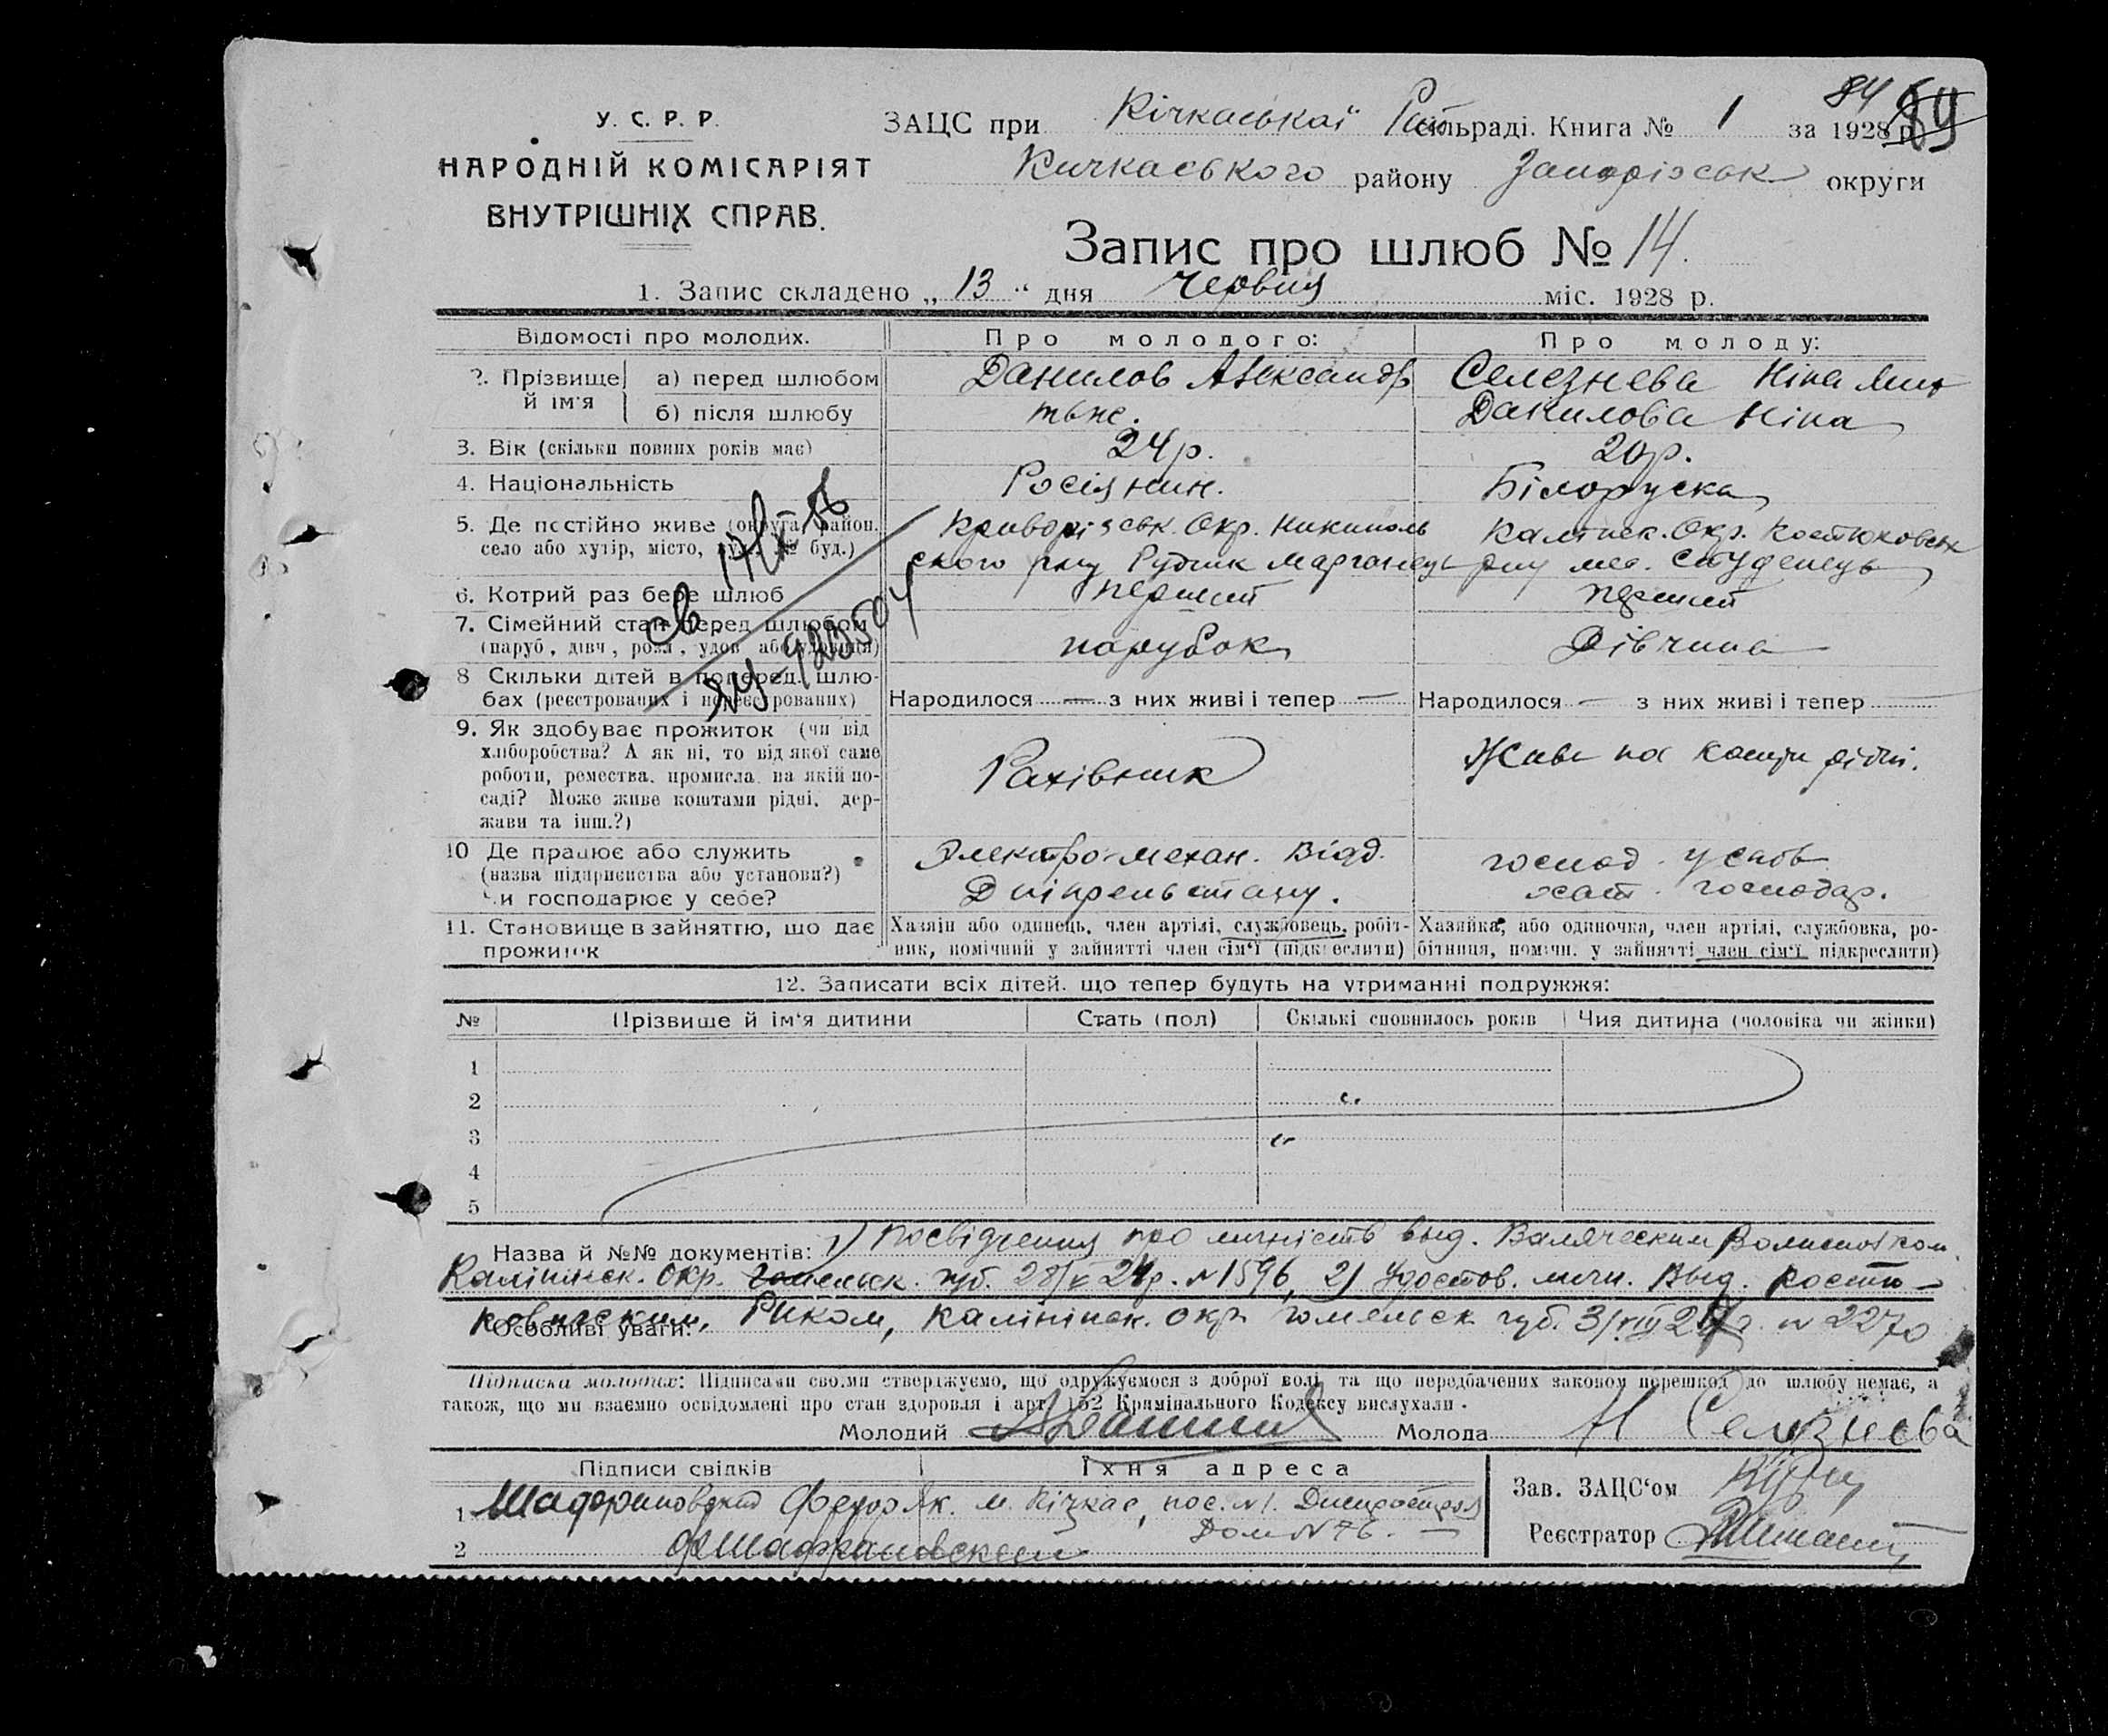 84 89
У. С. Р. Р.
НАРОДНІЙ КОМІСАРІЯТ
ВНУТРІШНІХ СПРАВ.
ЗАЦС при Кічкаській сільраді. Книга № 1 за 1928 р.
Кичкаського району Запорізськ округи
Запис про шлюб № 14.
1. Запис складено „ 13 “ дня червня міс. 1928 р.
Відомості про молодих. Про молодого: Про молоду:
2. Прізвище й ім'я а) перед шлюбом Данилов Александр Селезнева Ніна
б) після шлюбу тьже. Данилова Ніна
3. Вік (скільки повних років має) 24 р. 20 р.
4. Національність Росіянин. Білоруска
5. Де постійно живе (округа, район. Криворізськ. Окр. Никиполь Калінск. Окр. Костюковск
село або хутір, місто, вул., № буд.) ского рну Рудник Марганець рну мес. Студенець
6. Котрий раз бере шлюб перший перший
7. Сімейний стан перед шлюбом парубок Дівчина
(паруб, дівч, розл, удов або удовиця)
8 Скільки дітей в поперед. шлю-
бах (реєстрованих і нереєстрованих) Народилося — з них живі і тепер — Народилося — з них живі і тепер
9. Як здобуває прожиток (чи від
хліборобства? А як ні, то від якої саме
роботи, ремества, промисла, на якій по-
саді? Може живе коштами рідні, дер-
жави та інш.?)
Рахівник
Живе на кошти рідні.
10 Де працює або служить Электро-механ. Відд. господ.
(назва підприємства або установи?)
чи господарює у себе? Дніпрельстану. хат. господар.
11. Становище в зайняттю, що дає Хазяїн або одинець, член артілі, службовець, робіт- Хазяйка, або одиночка, член артілі, службовка, ро-
прожиток ник, помічний у зайнятті член сім'ї (підкреслити) бітниця, помічн. у зайнятті член сім'ї підкреслити)
12. Записати всіх дітей, що тепер будуть на утриманні подружжя:
№ Прізвище й ім'я дитини Стать (пол) Скількі сповнилось років Чия дитина (чоловіка чи жінки)
1
2
3
4
5
Назва й №№ документів: 1) Посвідчення про личність выд.
Калінінск. Окр. Гомельск. губ. 28/V 24р. №1596, 2) Удостов. личн. Выд. Костю-
ковичским, Риком, Калінінск. окр. Гомельск губ. № 2270
Особливі уваги:
Підписка молодих: Підписами своїми стверджуємо, що одружуємося з доброї волі та що передбачених законом перешкод до шлюбу немає, а
також, що ми взаємно освідомлені про стан здоровля і арт. 152 Кримінального Кодексу вислухали.
Молодий Молода Н Селезнева
Підписи свідків Їхня адреса
1 м. Кічкас, пос. №1. Днипрострой
Дом № 76. —
2
Зав. ЗАЦС'ом
Реєстратор